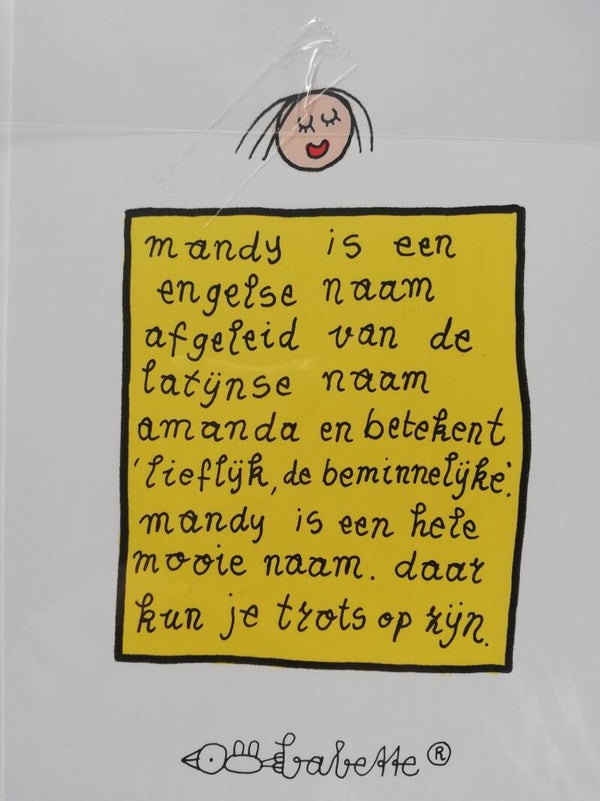 mandy is een
engelse naam
afgeleid van de
latijnse naam
amanda en betekent
'lieflijk, de beminnelijke'.
mandy is een hele
mooie naam. daar
kun je trots op zijn.
babette ®